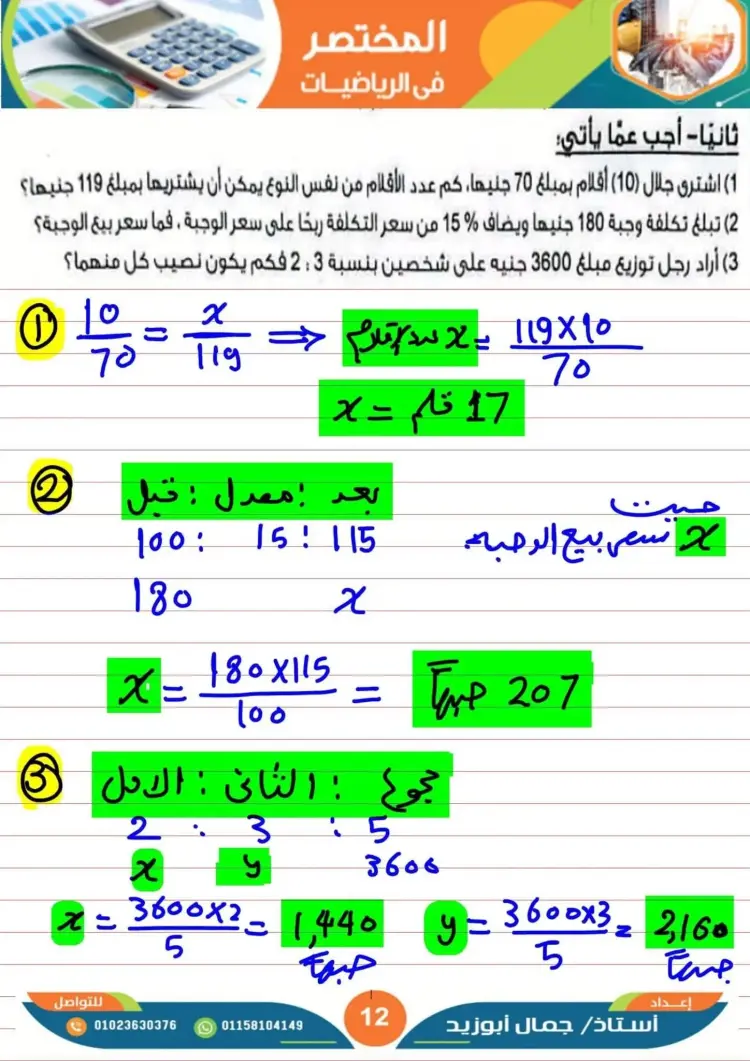 المختصر
فى الرياضيات
ثانيًا- أجب عمَّا يأتي:
1) اشترى جلال (10) أقلام بمبلغ 70 جنيها، كم عدد الأقلام من نفس النوع يمكن أن يشتريها بمبلغ 119 جنيها؟
2) تبلغ تكلفة وجبة 180 جنيها ويضاف 15 % من سعر التكلفة ربحًا على سعر الوجبة ، فما سعر بيع الوجبة؟
3) أراد رجل توزيع مبلغ 3600 جنيه على شخصين بنسبة 3 : 2 فكم يكون نصيب كل منهما؟
① 10/70 = x/119 ⟹ x عدد الأقلام = 119×10/70
x = 17 قلم
② قبل : معدل : بعد
100 : 15 : 115
حيث x سعر بيع الوجبة
180 x
x = 180×115/100 = 207 جنيهاً
③ الأول : الثانى : مجموع
2 : 3 : 5
x y 3600
x = 3600×2/5 = 1,440 جنيهاً y = 3600×3/5 = 2,160 جنيهاً
للتواصل
01023630376 01158104149
12
إعداد
أستاذ/ جمال أبوزيد